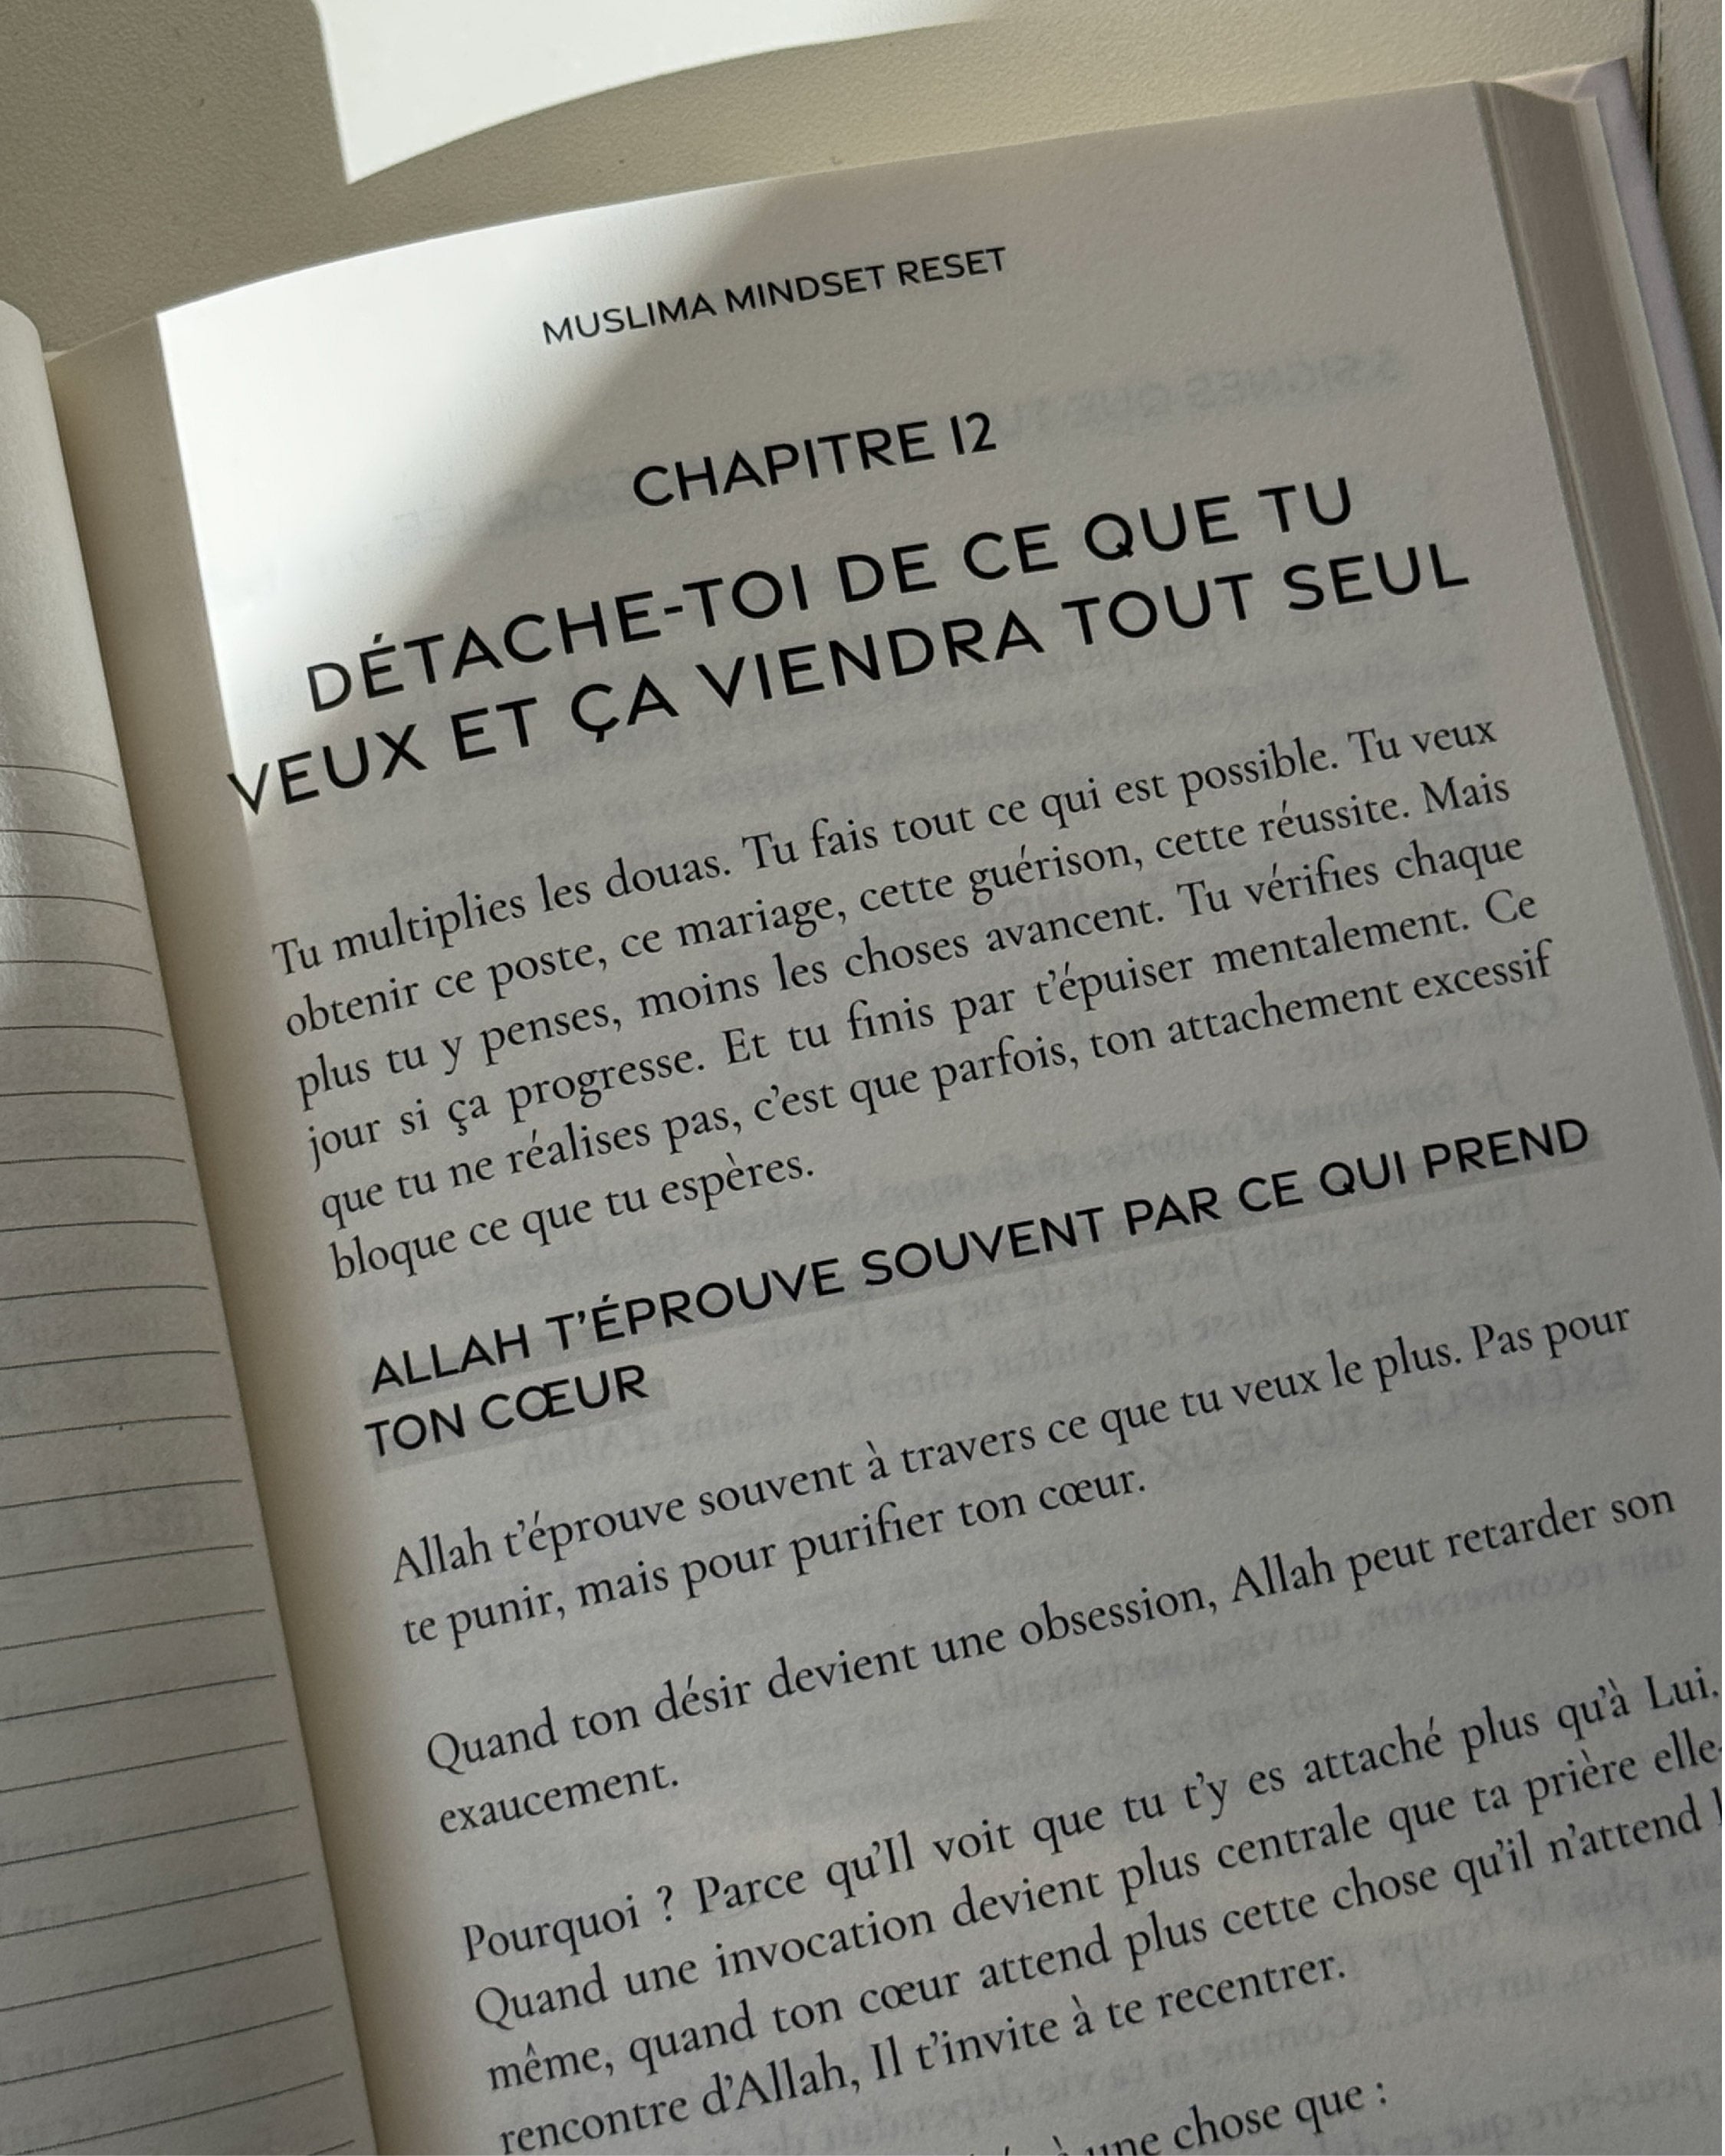 MUSLIMA MINDSET RESET
CHAPITRE 12
DÉTACHE-TOI DE CE QUE TU
VEUX ET ÇA VIENDRA TOUT SEUL
Tu multiplies les douas. Tu fais tout ce qui est possible. Tu veux
obtenir ce poste, ce mariage, cette guérison, cette réussite. Mais
plus tu y penses, moins les choses avancent. Tu vérifies chaque
jour si ça progresse. Et tu finis par t’épuiser mentalement. Ce
que tu ne réalises pas, c’est que parfois, ton attachement excessif
bloque ce que tu espères.
ALLAH T’ÉPROUVE SOUVENT PAR CE QUI PREND
TON CŒUR
Allah t’éprouve souvent à travers ce que tu veux le plus. Pas pour
te punir, mais pour purifier ton cœur.
Quand ton désir devient une obsession, Allah peut retarder son
exaucement.
Pourquoi ? Parce qu’Il voit que tu t’y es attaché plus qu’à Lui.
Quand une invocation devient plus centrale que ta prière elle-
même, quand ton cœur attend plus cette chose qu’il n’attend
rencontre d’Allah, Il t’invite à te recentrer.
une chose que :